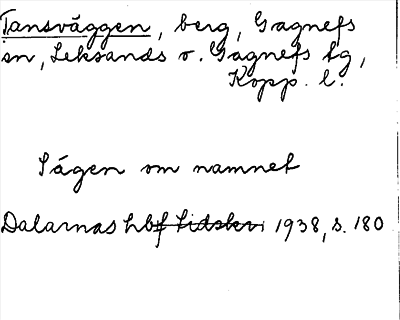 Tansväggen, berg, Gagnefs
sn, Leksands o. Gagnefs tg,
Kopp. l.
Sägen om namnet
Dalarnas hbf tidskr. 1938, s. 180